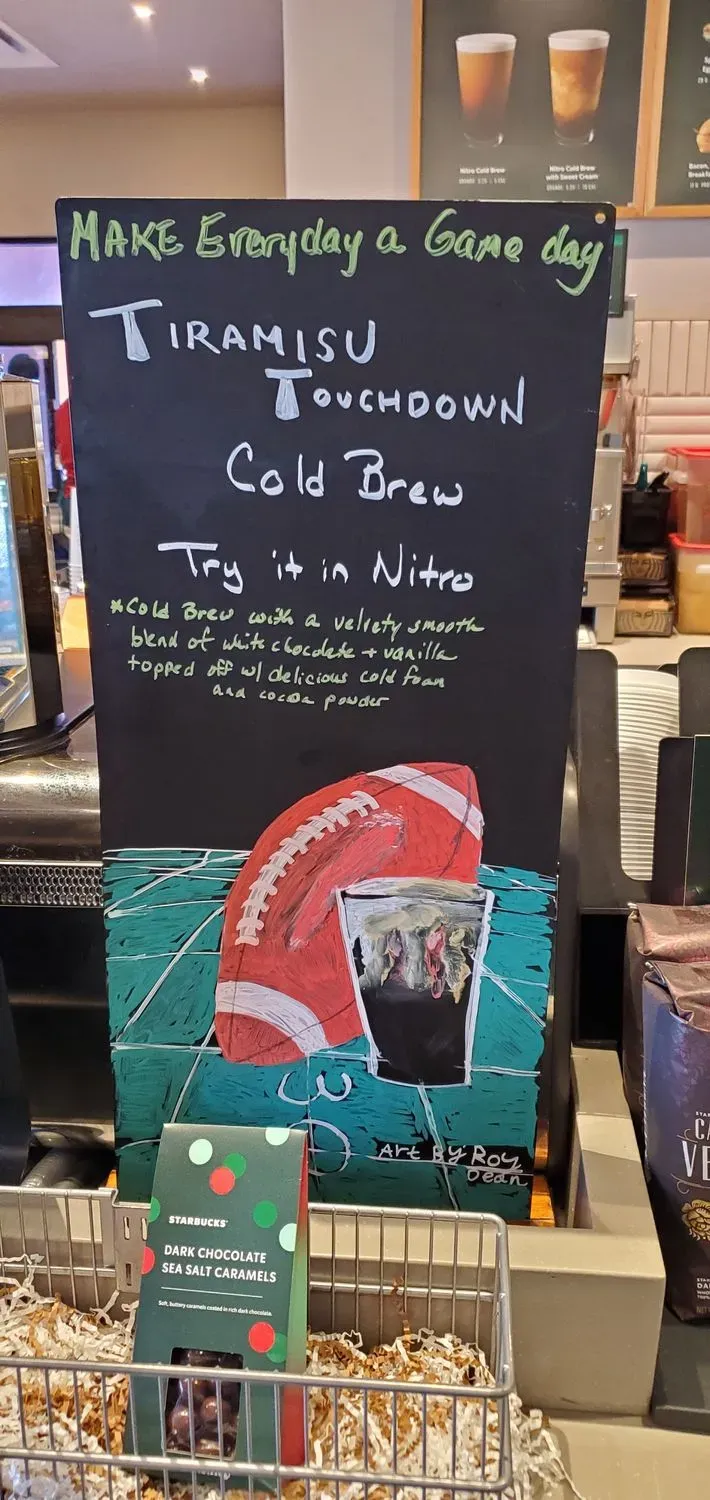 Nitro Cold Brew
Nitro Cold Brew
with Sweet Cream
MAKE Everyday a Game day
TIRAMISU
TOUCHDOWN
Cold Brew
Try it in Nitro
*Cold Brew with a velvety smooth
blend of white chocolate + vanilla
topped off w/ delicious cold foam
and cocoa powder
30
Art By Roy
Dean
STARBUCKS
DARK CHOCOLATE
SEA SALT CARAMELS
Soft, buttery caramels coated in rich dark chocolate.